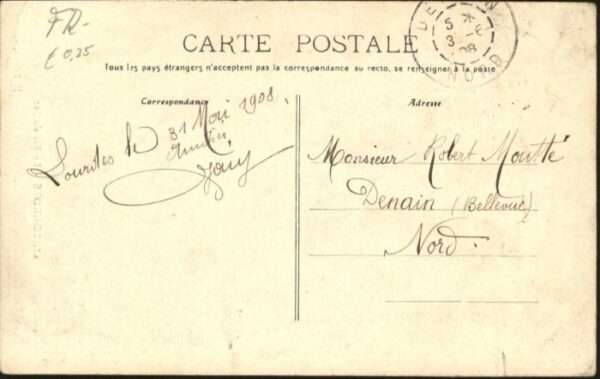 FR-
€ 0,25
DENAIN
5 *
3 -6
08
NORD
CARTE POSTALE
Tous les pays étrangers n'acceptent pas la correspondance au recto, se renseigner à la poste
Correspondance
Lourdes le 31 Mai 1908.
Adresse
Monsieur Robert Moutté
Denain (Bellevue)
Nord.